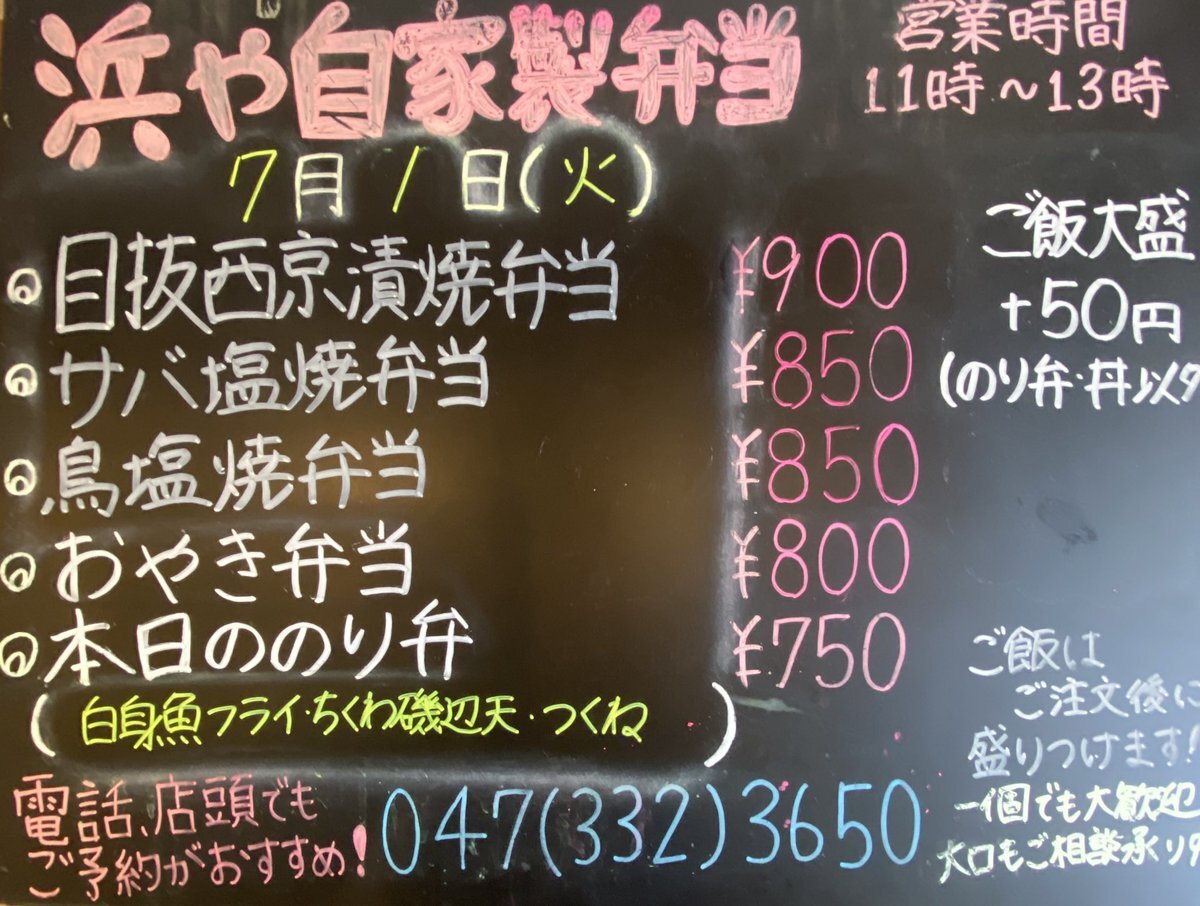 浜や自家製弁当
営業時間
11時～13時
7月1日(火)
目抜西京漬焼弁当 ¥900
サバ塩焼弁当 ¥850
鳥塩焼弁当 ¥850
おやき弁当 ¥800
本日ののり弁 ¥750
(白身魚フライ・ちくわ磯辺天・つくね)
ご飯大盛
+50円
(のり弁・丼以外
ご飯は
ご注文後に
盛りつけます!
一個でも大歓迎
大口もご相談承り
電話、店頭でも
ご予約がおすすめ!
047(332)3650